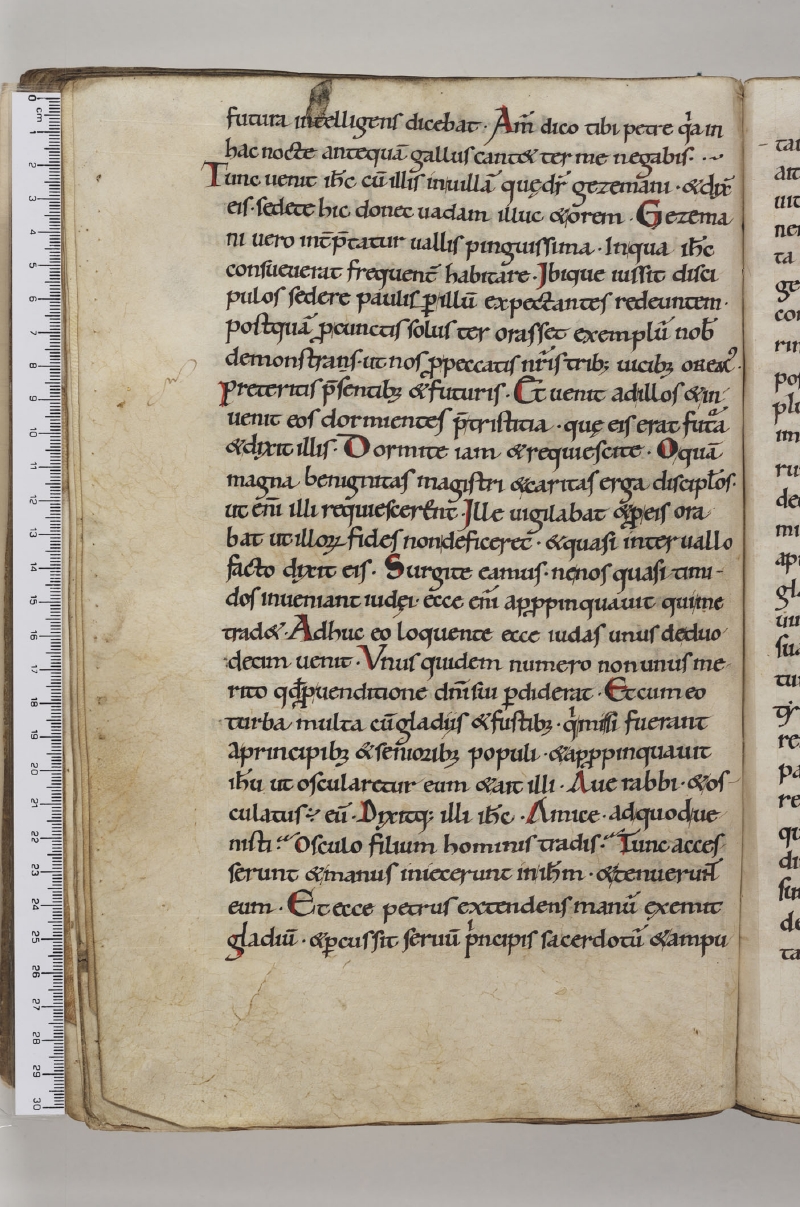 futura intelligens dicebat · Am̄ dico tibi petre qͥa in
hac nocte antequā gallus cant& ter me negabis· ·~
Tunc uenit ih̄c cū illis in uillā quę dr̄ gezemani · & dix̄
eis· sedete hic donec uadam illuc & orem · Gezema
ni uero int̄p̄tatur uallis pinguissima · In qua ih̄c
consueuerat frequent̄ habitare · Ibique iussit disci
pulos sedere paulis ꝑ illū expectantes redeuntem ·
postquā ꝓ cunctis solus ter orasset exemplū nob̄
demonstrans· ut nos ꝓ peccatis nr̄is trib; uicib; orem᷒ ·
preteritis p̄sentib; & futuris · Et uenit ad illos & in
uenit eos dormientes p̄ tristitia · quę eis erat futᷓa
& dixit illis · Dormite iam & requiescite · O quā
magna benignitas magistri & caritas erga discipl̄os·
ut em̄ illi requiescerent · Ille uigilabat & ꝓ eis ora
bat ut illoꝝ fides non deficeret · & quasi interuallo
facto dixit eis · Surgite eamus· ne nos quasi timi-
dos inueniant iudęi· ecce em̄ appꝓpinquauit qui me
trad&· Adhuc eo loquente ecce iudas unus de duo
decim uenit · Vnus quidem numero non unus me
rito qđ ꝓ uenditione dn̄i sui ꝑdiderat · Et cum eo
turba multa cū gladiis & fustib; · qͥ missi fuerant
a principib; & senioribꝫ populi · & appꝓpinquauit
ih̄u ut oscularetur eum & ait illi · Aue rabbi · & os-
culatus ÷ eū · Dixitq; illi ih̄c · Amice · ad quod ue
nisti · Osculo filium hominis tradis · Tunc acces
serunt & manus iniecerunt in ih̄m · & tenuerunt
eum · Et ecce petrus extendens manū exemit
gladiū · & ꝑcussit seruū pͥncipis sacerdotū & ampu